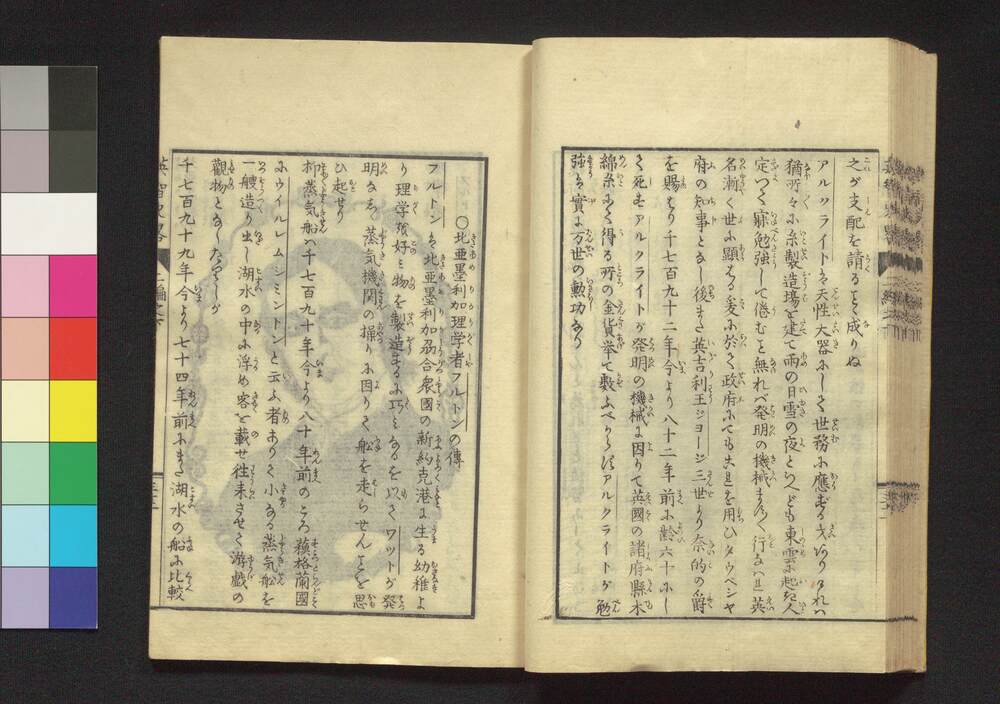 之が支配を請ること成りぬ
アルクライトは天性大器にして世務に應ずる才ありけれバ
猶所々に糸製造場を建て雨の日雪の夜といへども東雲に起き人
定つて寐勉強して倦むこと無れバ発明の機械まつたく行なはれ英
名漸く世に顕はる爰に於て政府にても其を用ひタウベシヤ
府の知事となし後また英吉利王ジヨージ三世より奈的の爵
を賜はり千七百九十二年今より八十二年前に齢六十にし
て死せりアルクライトが発明の機械に因りて英國の諸府縣木
綿糸にて得る所の金貨挙て数ふべからずアルクライトが勉
強は實に万世の勲功なり
○北亜墨利加理学者フルトンの傳
フルトンは北亜墨利加合衆國の新約克港に生る幼稚よ
り理学を好ミ物を製造するに巧ミなるを以てワットが発
明なしゝ蒸気機関の操りに因りて舩を走らせんことを思
ひ起せり
抑蒸気舩ハ千七百九十年今より八十年前のころ蘓格蘭國
にウイルレムシミントンと云ふ者ありて小なる蒸気舩を
一艘造り出し湖水の中に浮め客を載せ往来させて游戯の
觀物となしたりしが
千七百九十九年今より七十四年前にまた湖水の舩に比較